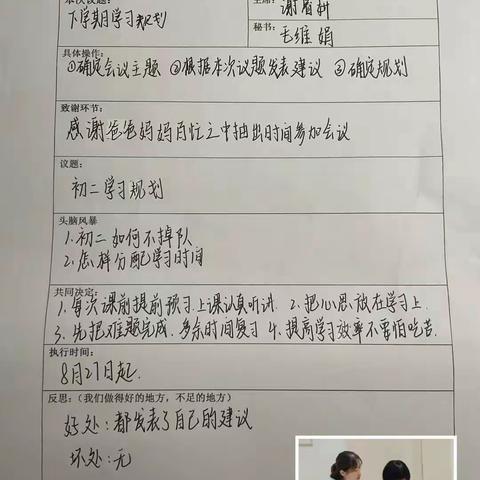 本次议题：
下学期学习规划
主席：
谢眉轩
秘书：
毛维娟
具体操作：
①确定会议主题 ②根据本次议题发表建议 ③确定规划
致谢环节：
感谢爸爸妈妈百忙之中抽出时间参加会议
议题：
初二学习规划
头脑风暴
1.初二如何不掉队
2.怎样分配学习时间
共同决定：
1.每次课前提前预习.上课认真听讲. 2.把心思放在学习上.
3.先把难题完成.多余时间复习 4.提高学习效率不要怕吃苦.
执行时间：
8月27日起.
反思：（我们做得好的地方，不足的地方）
好处：都发表了自己的建议
坏处：无